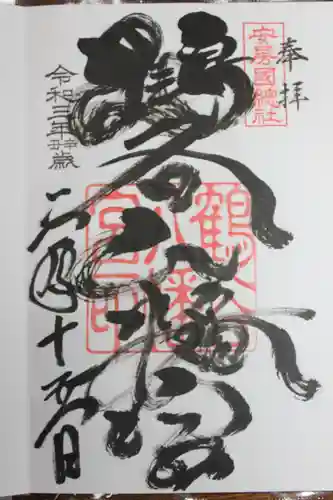 奉拝
安房國總社
鶴谷八幡宮
鶴谷八幡宮印
令和三年辛丑歳
二月十日